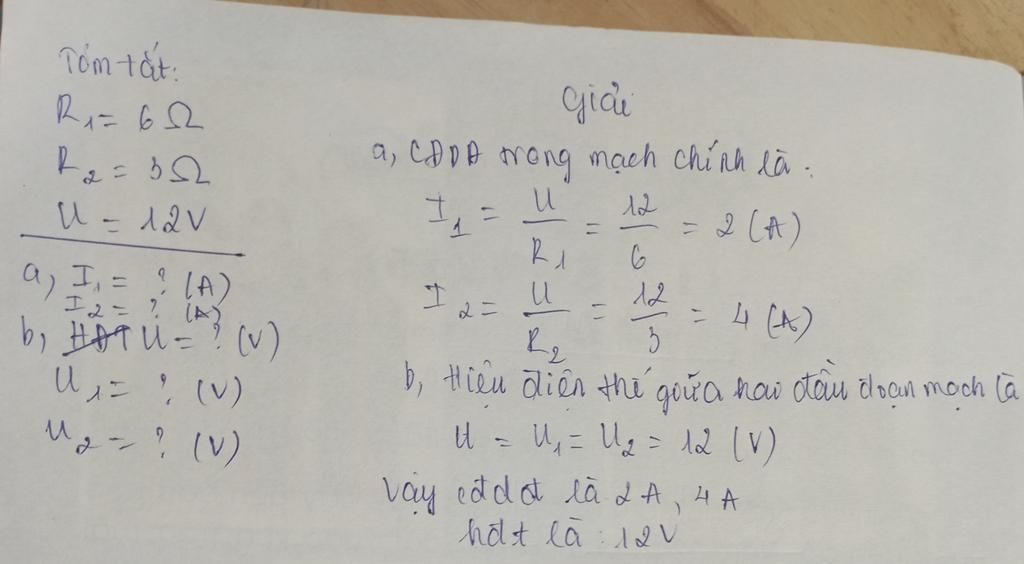 Tóm tắt:
R1 = 6 Ω
R2 = 3Ω
U = 12V
a, I1 = ? (A)
I2 = ? (A)
b, HĐT U = ? (V)
U1 = ? (V)
U2 = ? (V)
Giải
a, CĐDĐ trong mạch chính là:
I1 = U/R1 = 12/6 = 2 (A)
I2 = U/R2 = 12/3 = 4 (A)
b, Hiệu điện thế giữa hai đầu đoạn mạch là
U = U1 = U2 = 12 (V)
Vậy cđdđ là 2A, 4A
hđt là : 12V